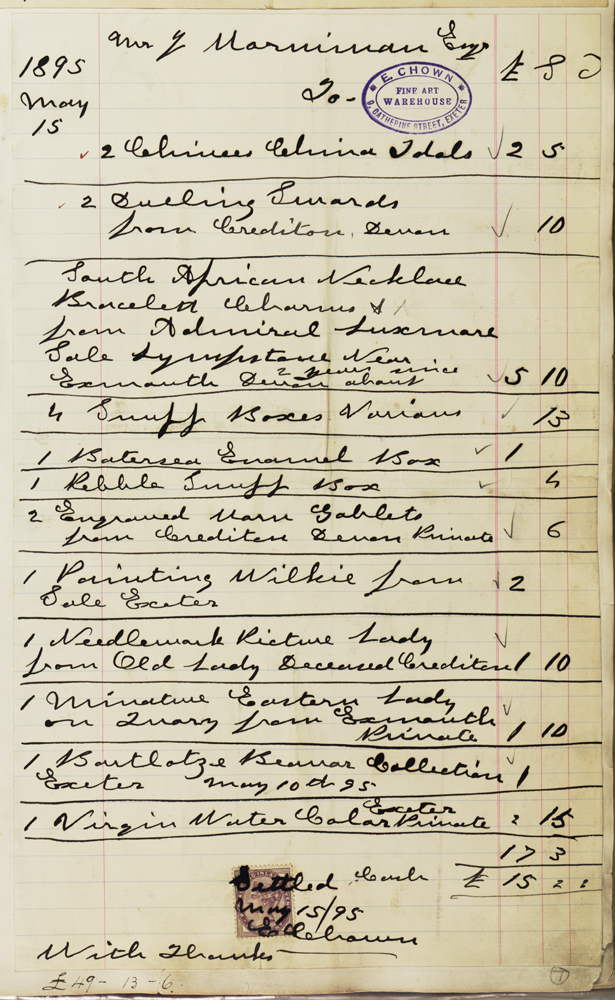 Mr J Horniman Esqr
1895 £ S D
May To-
15
E. CHOWN
FINE ART
WAREHOUSE
9, CATHERINE STREET, EXETER
2 Chinees China Idols 2 5
2 Duelling Swords
from Crediton, Devon 10
South African Necklace
Bracelett Charms
from Admiral Luxmore
Sale Lympstone Near
2 years since
Exmouth Devon about 5 10
4 Snuff Boxes Various 13
1 Batersea Enamel Box 1
1 Pebble Snuff Box 4
2 Engraved Horn Goblets
from Crediton Devon Private 6
1 Painting Wilkie from 2
Sale Exeter
1 Needlework Picture Lady
from Old Lady Deceased Crediton 1 10
1 Minature Eastern Lady
on Ivory from Exmouth
Private 1 10
1 Bartlotze Beavar Collection 1
Exeter May 10th 95
Exeter
1 Virgin Water Color Private " 15
17 3
Settled Cash £ 15 " "
May 15/95
E Chown
With Thanks
£49-13-6.
1